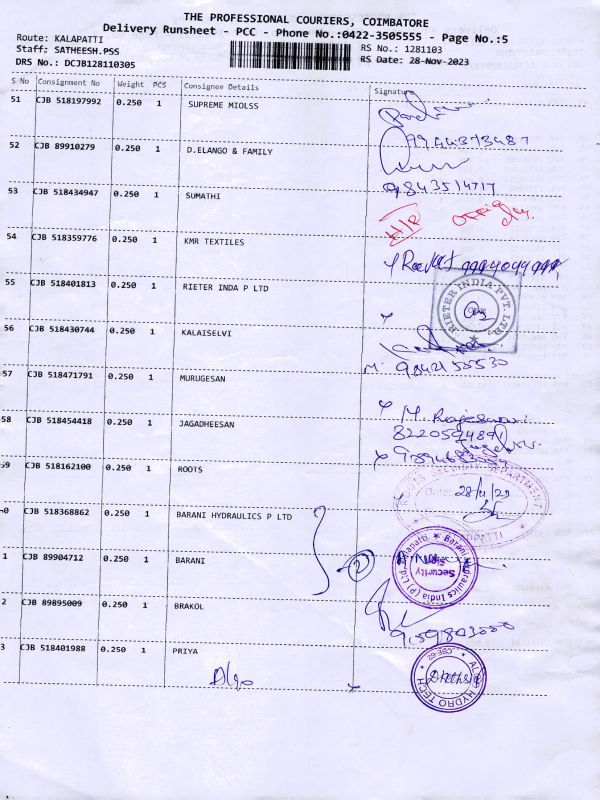 THE PROFESSIONAL COURIERS, COIMBATORE
Delivery Runsheet - PCC - Phone No.:0422-3505555 - Page No.:5
Route: KALAPATTI
RS No.: 1281103
Staff: SATHEESH.PSS
RS Date: 28-Nov-2023
DRS No.: DCJB128110305
S No Consignment No Weight PCS Consignee Details Signature
51 CJB 518197992 0.250 1 SUPREME MIOLSS
9944373487
52 CJB 89910279 0.250 1 D.ELANGO & FAMILY
9843514717
53 CJB 518434947 0.250 1 SUMATHI
54 CJB 518359776 0.250 1 KMR TEXTILES
55 CJB 518401813 0.250 1 RIETER INDA P LTD
RIETER INDIA PVT. LTD.
56 CJB 518430744 0.250 1 KALAISELVI
M: 9842155530
57 CJB 518471791 0.250 1 MURUGESAN
M. Rajeswari
58 CJB 518454418 0.250 1 JAGADHEESAN
8220594891
59 CJB 518162100 0.250 1 ROOTS
ROOTS SECURITY DEPARTMENT
Date: 28/11/22
0 CJB 518368862 0.250 1 BARANI HYDRAULICS P LTD
1 CJB 89904712 0.250 1 BARANI
2
Barani Hydraulics India (P) Ltd.
Security
SIGN
2 CJB 89895009 0.250 1 BRAKOL
3 CJB 518401988 0.250 1 PRIYA
HYDRO TECH